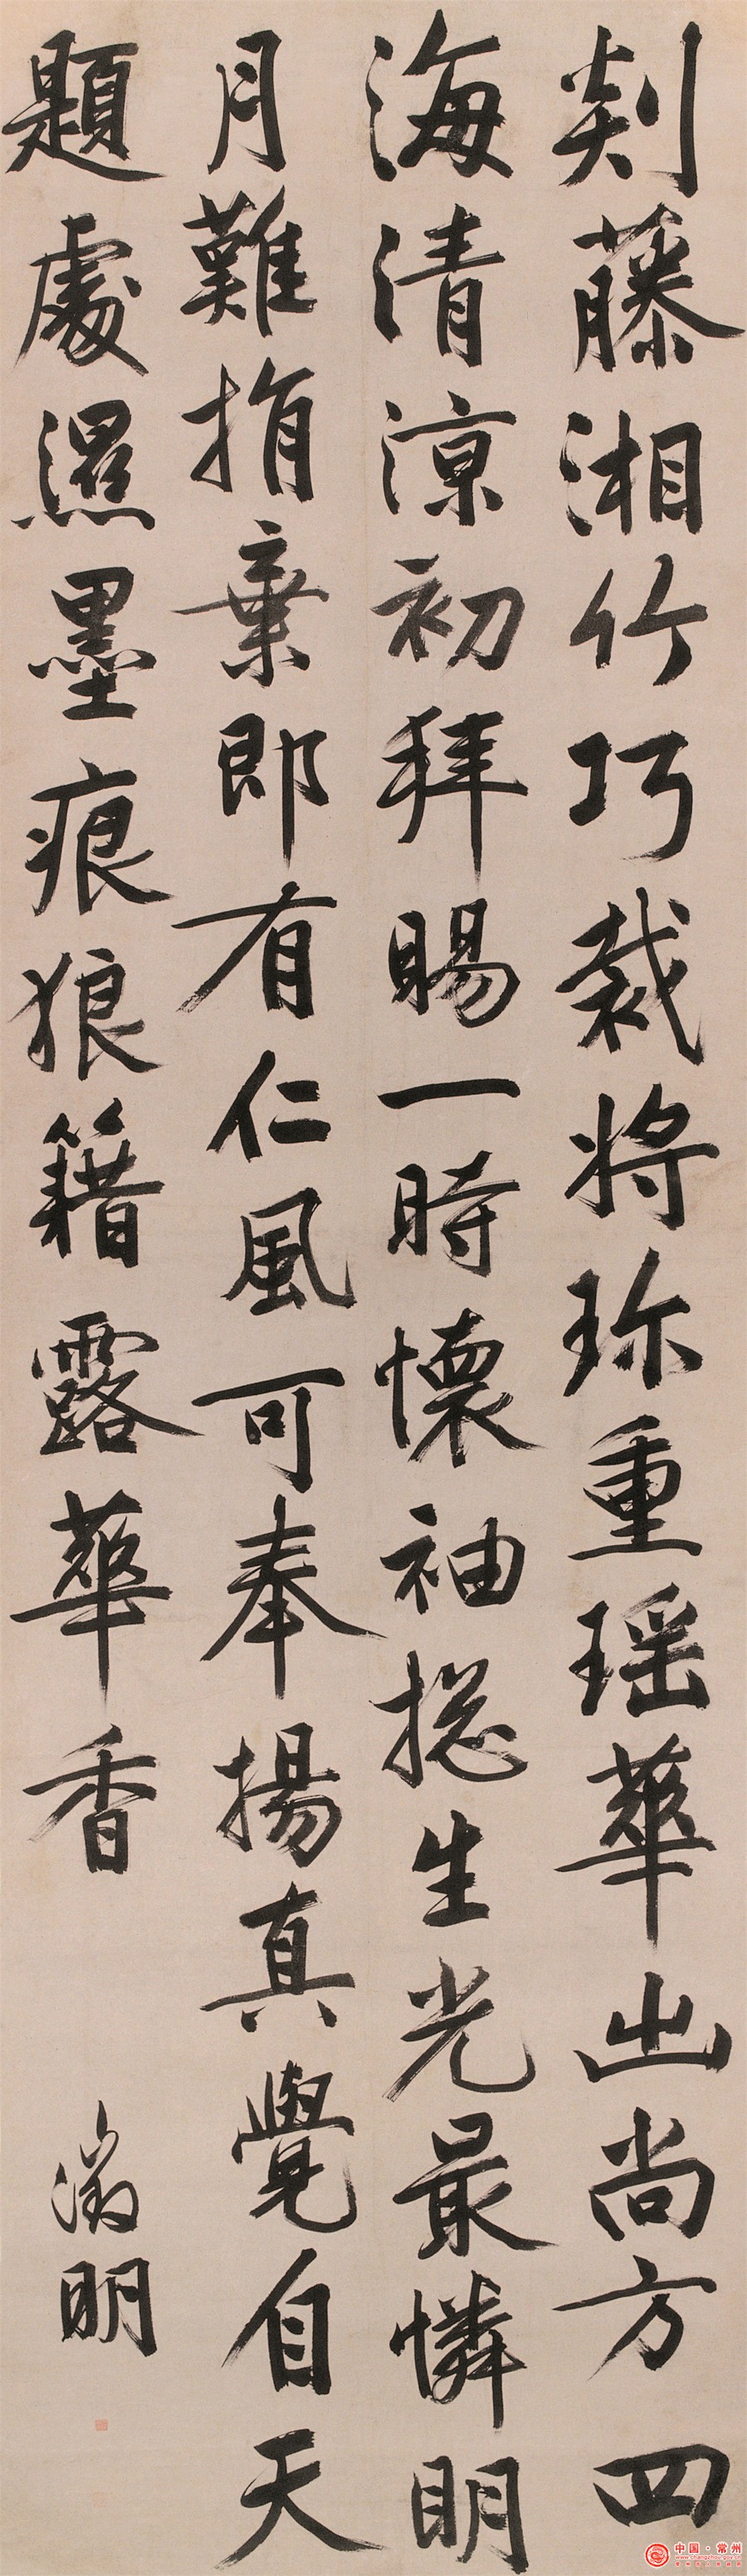 剡藤湘竹巧裁将珎重瑶華出尚方四
海清涼初拜賜一時懷袖捴生光最憐明
月難捐棄即有仁風可奉揚真覺自天
題處濕墨痕狼籍露華香
徵明
中国·常州
www.changzhou.gov.cn